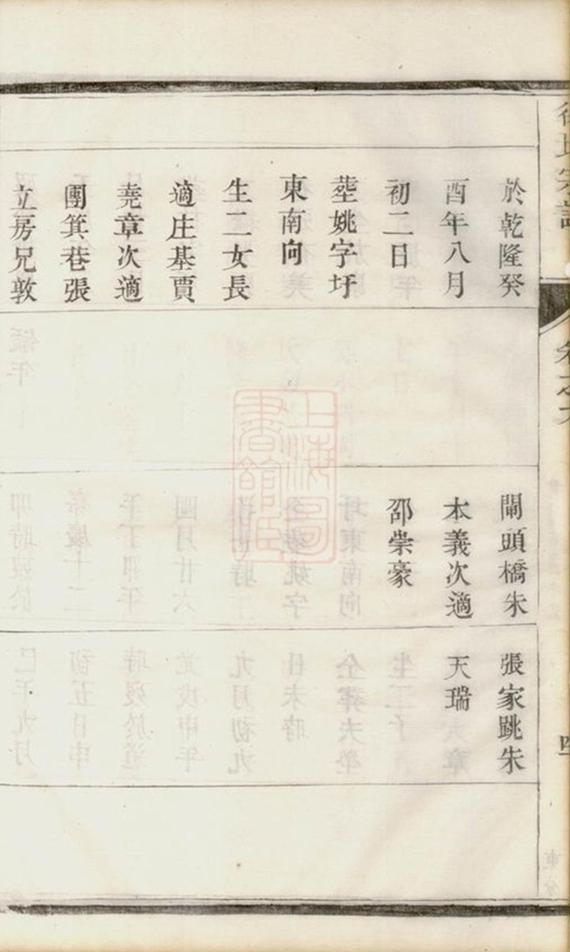 於乾隆癸
酉年八月
初二日
塟姚字圩
東南向
生二女長
適庄基賈
堯章次適
團箕巷張
立房兄敦
閘頭橋朱
本義次適
邵崇豪
張家跳朱
天瑞
上海圖
書館藏